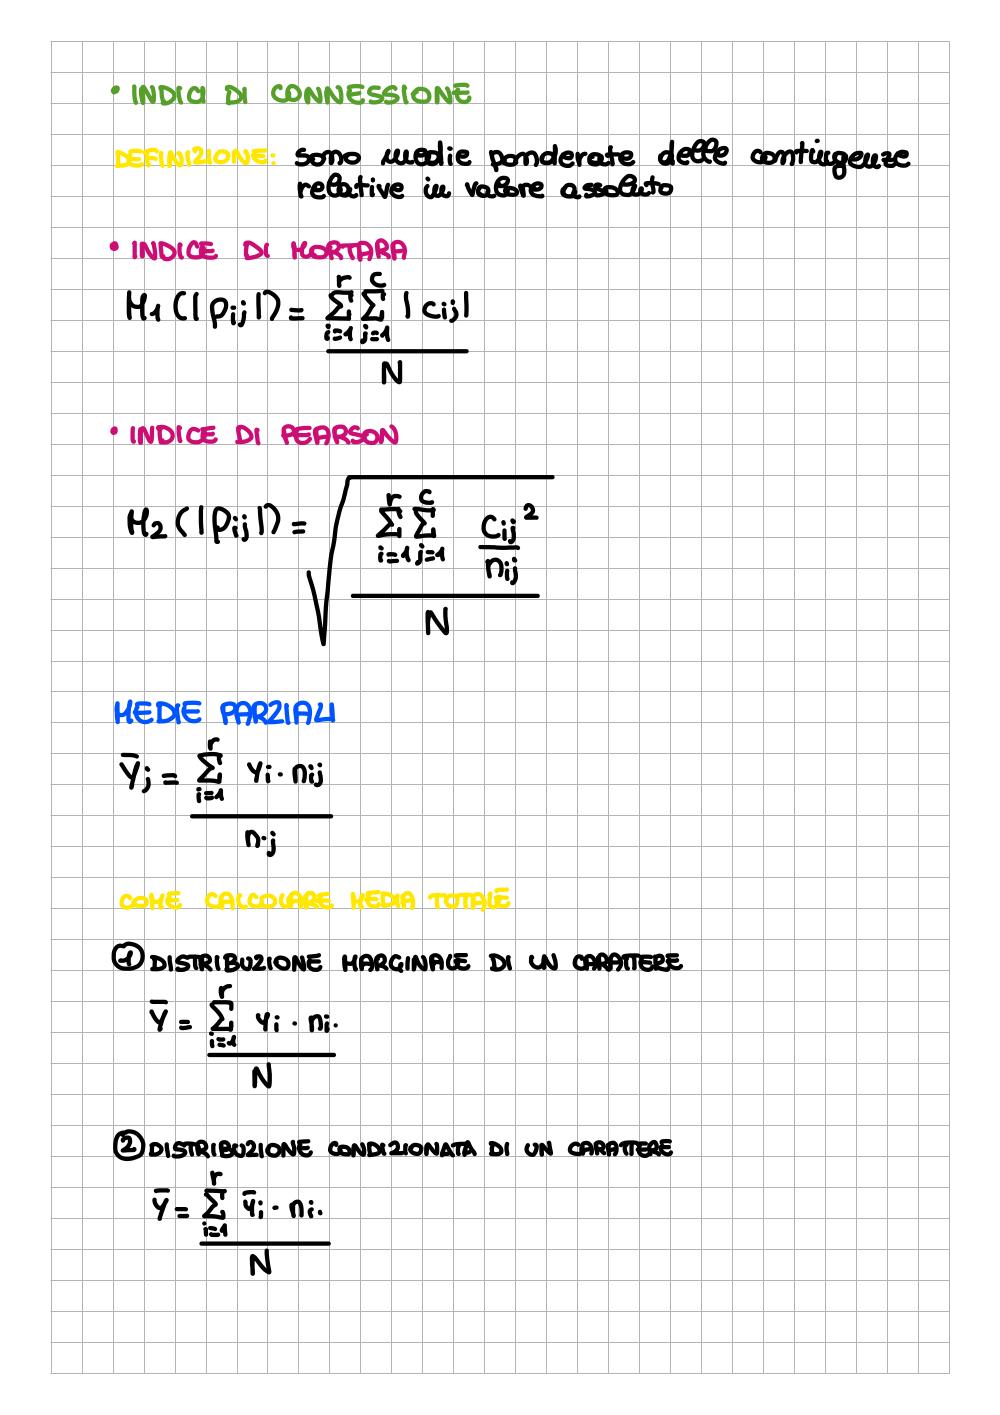 • INDICI DI CONNESSIONE
DEFINIZIONE: sono medie ponderate delle contingenze
relative in valore assoluto
• INDICE DI MORTARA
M₁ (|ρij|) = ∑ᵢ₌₁ʳ ∑ⱼ₌₁ᶜ |cij|
N
• INDICE DI PEARSON
M₂ (|ρij|) = √ ∑ᵢ₌₁ʳ ∑ⱼ₌₁ᶜ cij² / nij
N
MEDIE PARZIALI
Ȳj = ∑ᵢ₌₁ʳ yi · nij
n·j
COME CALCOLARE MEDIA TOTALE
① DISTRIBUZIONE MARGINALE DI UN CARATTERE
Ȳ = ∑ᵢ₌₁ʳ yi · ni.
N
② DISTRIBUZIONE CONDIZIONATA DI UN CARATTERE
Ȳ = ∑ᵢ₌₁ʳ ȳi · ni.
N